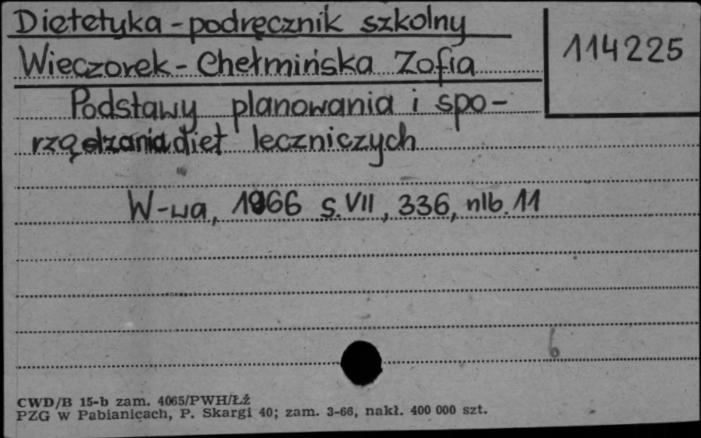 Dietetyka - podręcznik szkolny
114225
Wieczorek - Chełmińska Zofia
Podstawy planowania i spo-
rządzania diet leczniczych
W-wa, 1966 s. VII, 336, nlb. 11
6
CWD/B 15-b zam. 4065/PWH/ŁŻ
PZG w Pabianicach, P. Skargi 40; zam. 3-66, nakł. 400 000 szt.